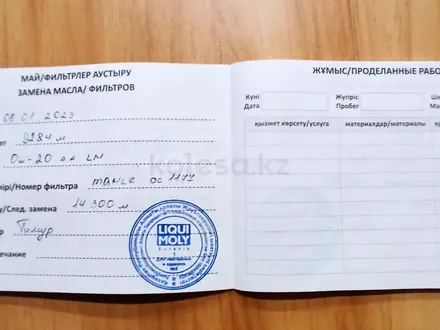 МАЙ/ФИЛЬТРЛЕР АУСТЫРУ
ЗАМЕНА МАСЛА/ ФИЛЬТРОВ
01 2023
9284 м
0w-20 AA LM
ірі/Номер фильтра MAHLE OC 1171
у/След. замена 14 300 м
Тимур
ечание
LIQUI
MOLY
kolesa.kz
ЖҰМЫС/ПРОДЕЛАННЫЕ РАБО
Күні
Дата
Жүгіріс
Пробег
Ше
Ма
қызмет көрсету/услуга
материалдар/материалы